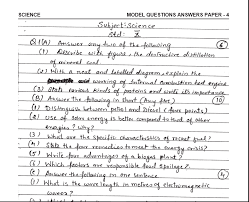 SCIENCE MODEL QUESTIONS ANSWERS PAPER - 4
Subject: Science
Std: X
Q1(A) Answer any two of the following (6)
(1) Describe with figure, the derivative distillation of mineral coal.
(2) With a neat and labelled diagram, explain the working of Internal Combustion fuel engine
(3) State various kinds of protons and write its importance.
(B) Answer the following in short (Any five) (10)
(1) Distinguish between petrol and Diesel (four points)
(2) Use of solar energy is better compared to that of other energies? Why?
(3) What are the specific characteristics of rocket fuel?
(4) State the four remedies to meet the energy crisis?
(5) Write four advantages of a biogas plant?
(6) Which factors are responsible for soil spoilage?
(c) Answer the following in one sentence (4)
(1) What is the wave length in metres of electromagnetic waves?